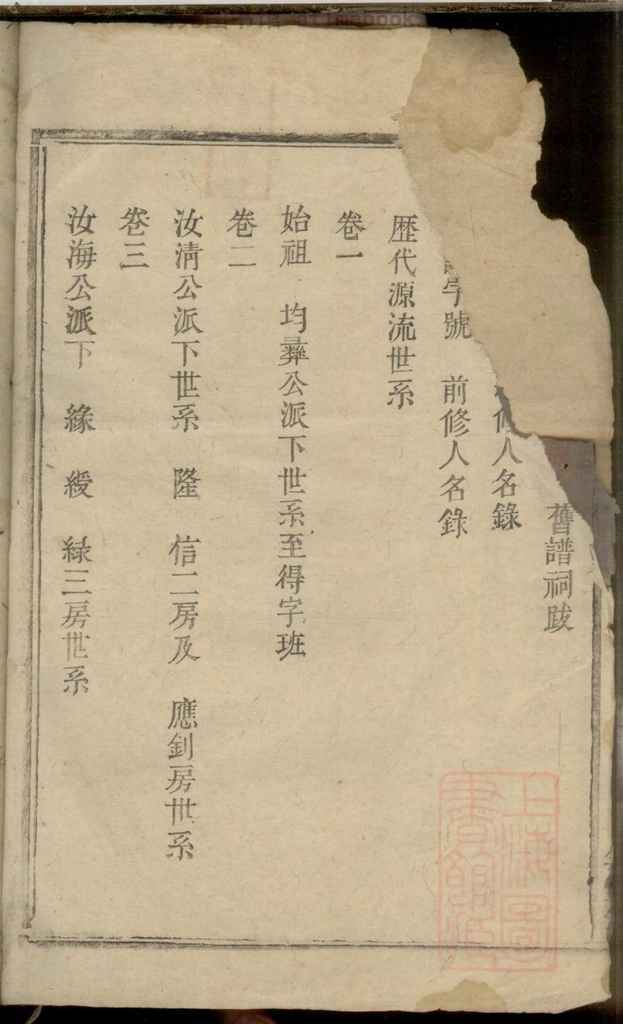 舊譜祠跋
修人名錄
字號 前修人名錄
歷代源流世系
卷一
始祖 均彞公派下世系至得字班
卷二
汝淸公派下世系 隆 信二房及 應釗房世系
卷三
汝海公派下 緣 綬 綠三房世系
上海圖書館藏